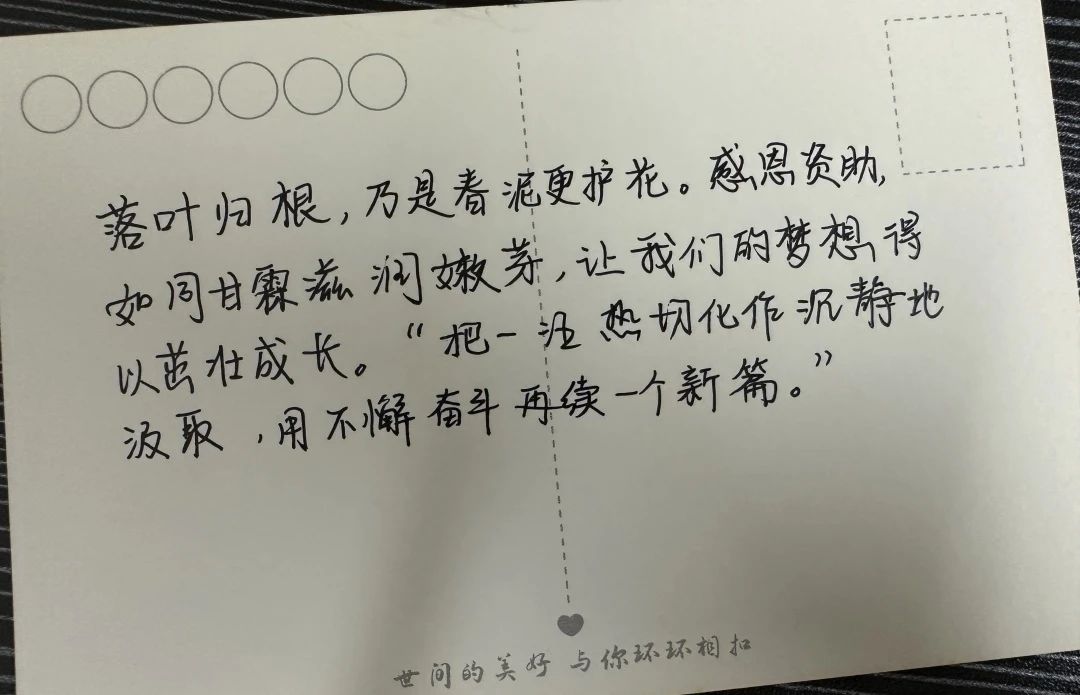 落叶归根，乃是春泥更护花。感恩资助，
如同甘霖滋润嫩芽，让我们的梦想得
以茁壮成长。“把一汪热切化作沉静地
汲取，用不懈奋斗再续一个新篇。”
世间的美好 与你环环相扣